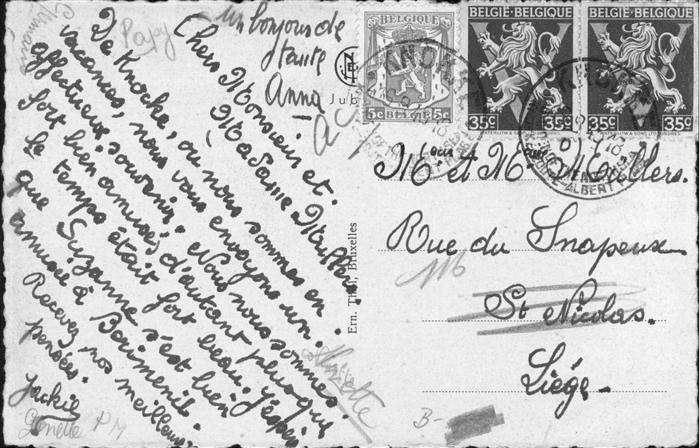 un bonjour de
Tante
Anna
Papy
Chers Monsieur et
Madame Meullers
De Knocke, où nous sommes en
vacances, nous vous envoyons un
affectueux souvenir. Nous nous sommes
fort bien amusés d'autant plus que
le temps était fort beau. J'espère
que Suzanne s'est bien
amusée à
Recevez nos meilleures
pensées.
Jackie
Ern. Thill, Bruxelles
BELGIE-BELGIQUE
35c
BELGIE-BELGIQUE
35c
BELGIQUE
5c BELGIE 5c
M et Me Meullers.
Rue du Snapeux
St Nicolas.
Liége.
B-